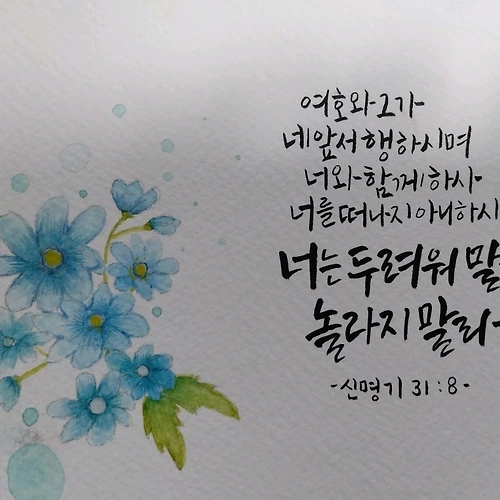 여호와 그가
네 앞서 행하시며
너와 함께 하사
너를 떠나지 아니하시
너는 두려워 말
놀라지 말라
-신명기 31:8-